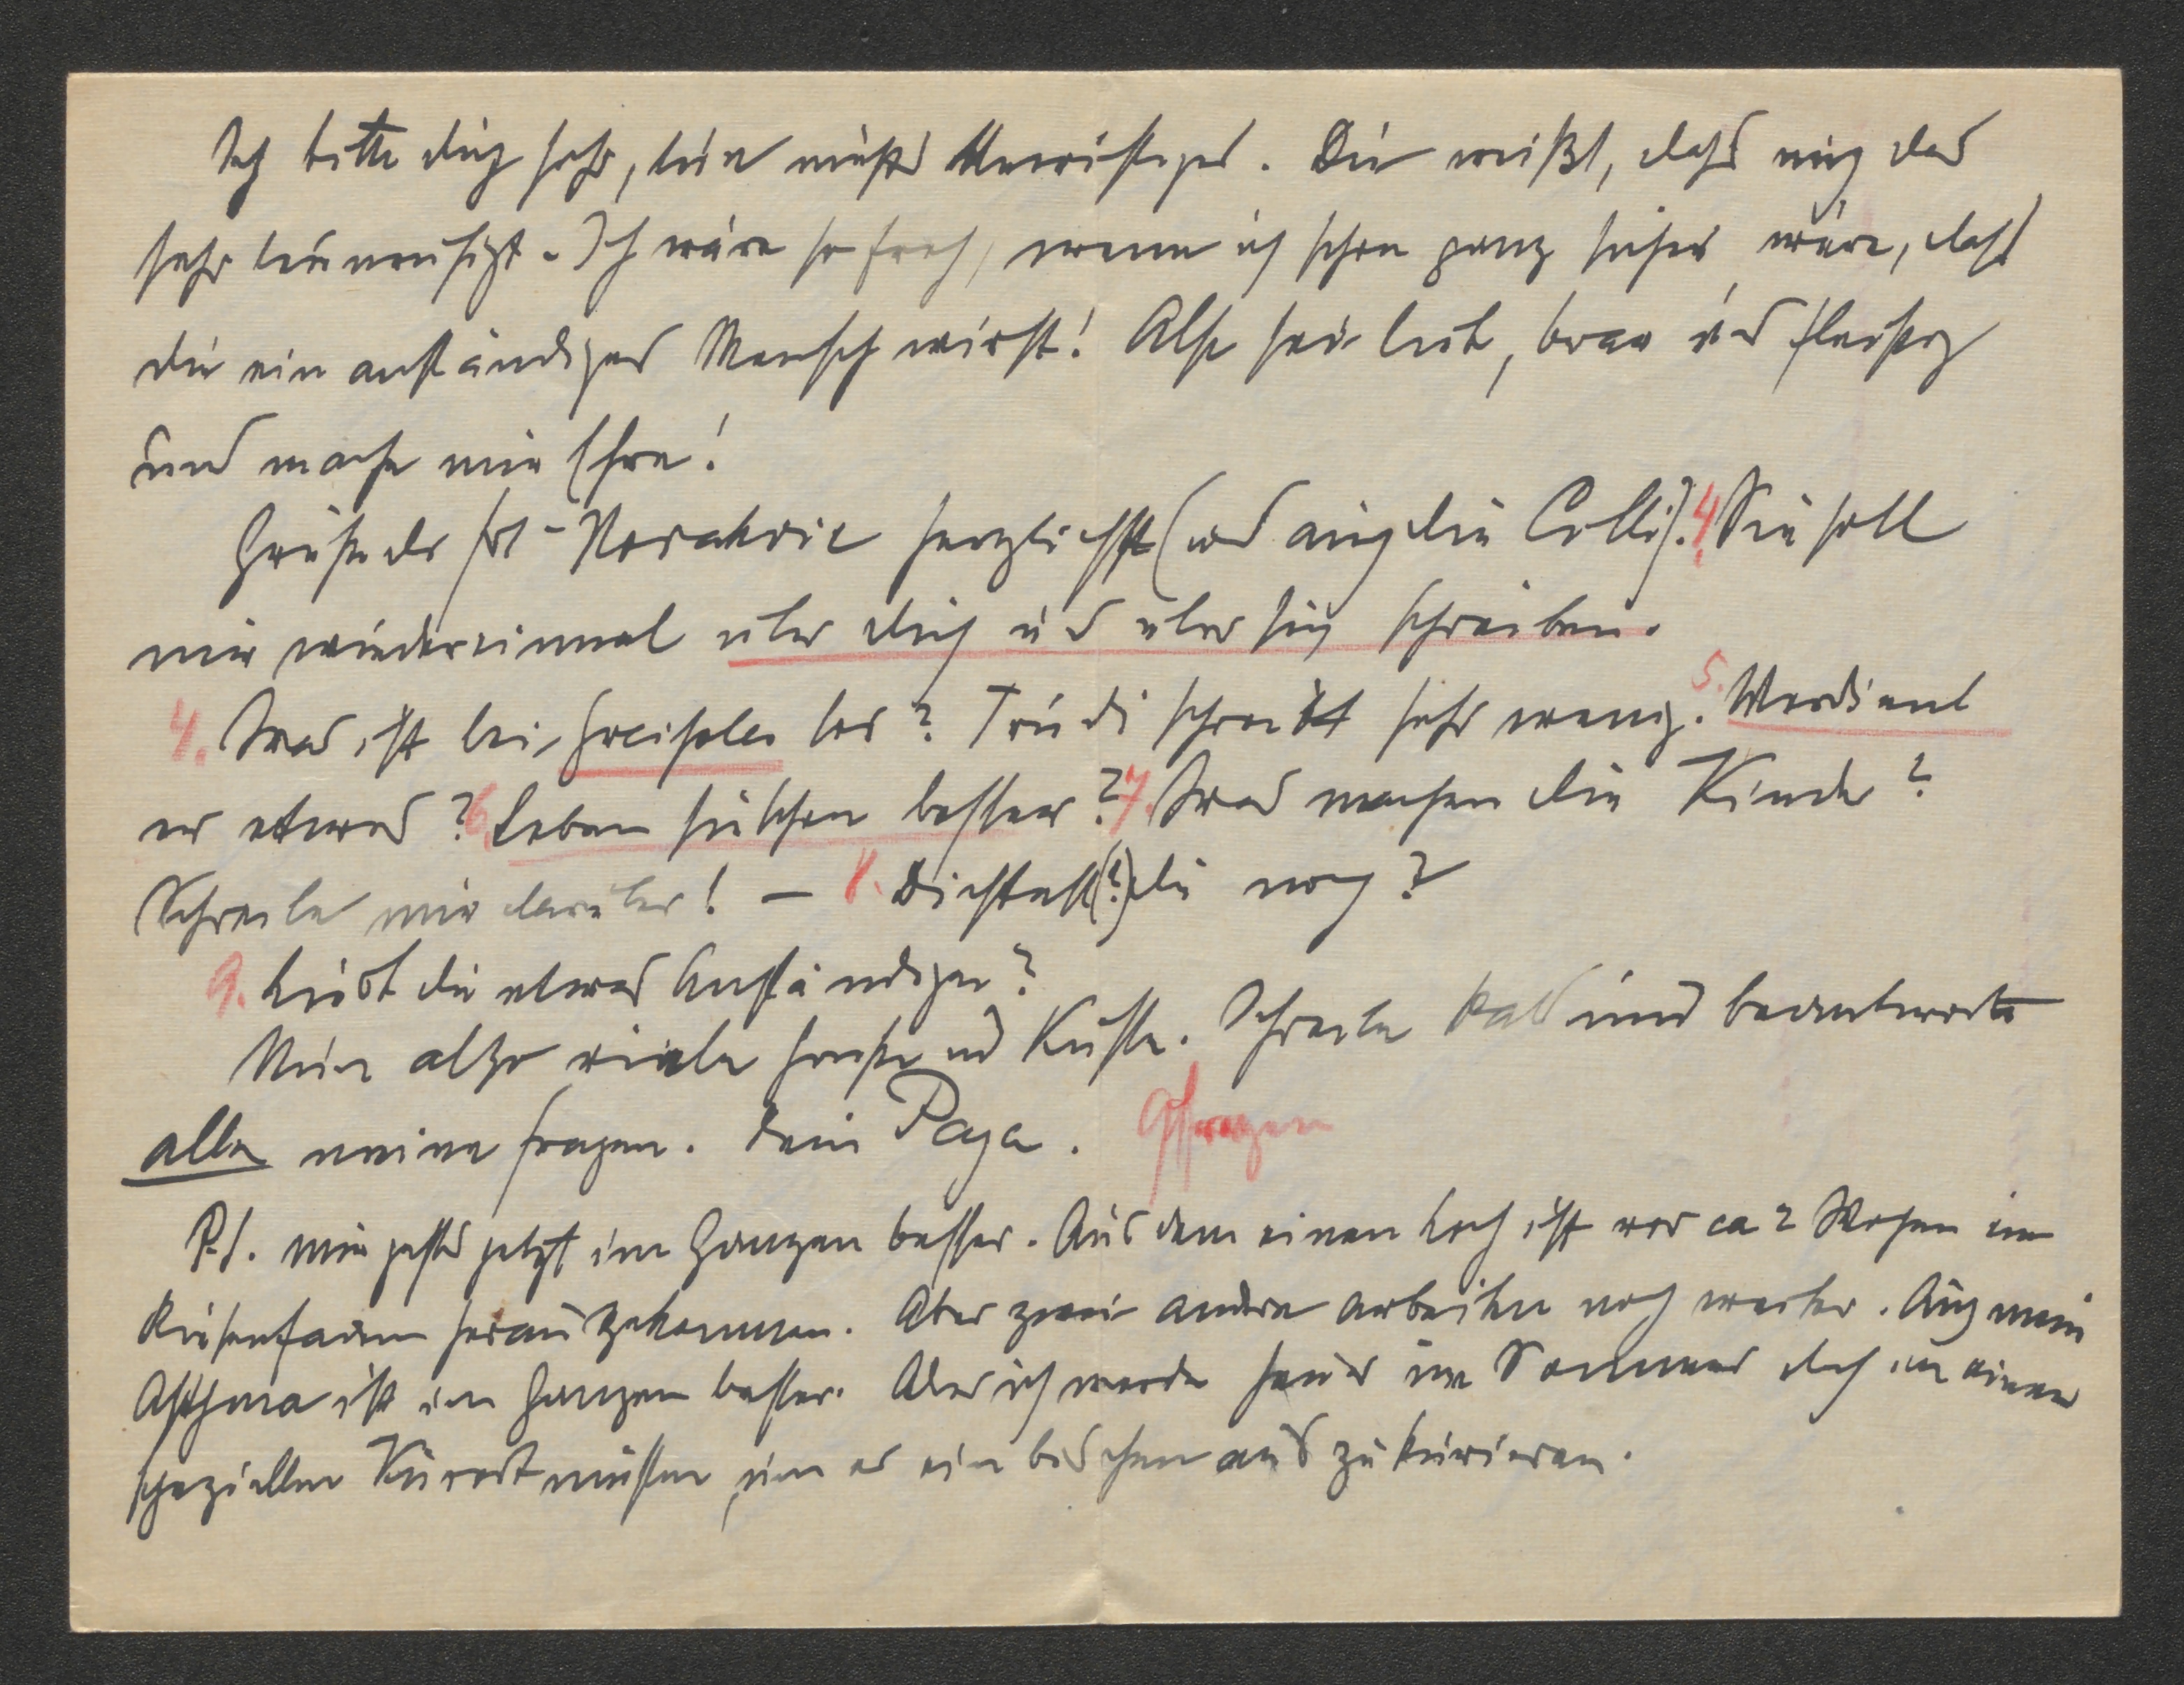 Ich bitte dich sehr, tue nichts Unrichtiges. Du weißt, dass mich das
sehr beunruhigt. Ich wäre so froh, wenn ich schon ganz sicher wäre, dass
du ein anständiger Mensch wirst! Also sei lieb, brav und fleissig
und mache mir Ehre!
Grüsse der Frl. Novakovic herzlichst (und auch die Colli). 4. Sie soll
mir wiedereinmal über dich und über sich schreiben.
4. Was ist bei los? Trudi schreibt sehr wenig. 5. Verdient
er etwas? 6. Leben sie schon besser? 7. Was machen die Kinder?
Schreibe mir darüber! — 8. Dichtest (?) du noch?
9. Liest du etwas Anständiges?
Nun also viele Grüsse und Küsse. Schreibe bald und beantworte
alle meine Fragen. Dein Papa. 9 Fragen
P.S. Mir geht es jetzt im Ganzen besser. Aus dem einen Loch ist vor ca 2 Wochen ein
Riesenfaden herausgekommen. Aber zwei andere arbeiten noch weiter. Auch mein
Asthma ist im Ganzen besser. Aber ich werde heuer im Sommer doch in einen
speziellen Kurort müssen, um es ein bischen auszukurieren.